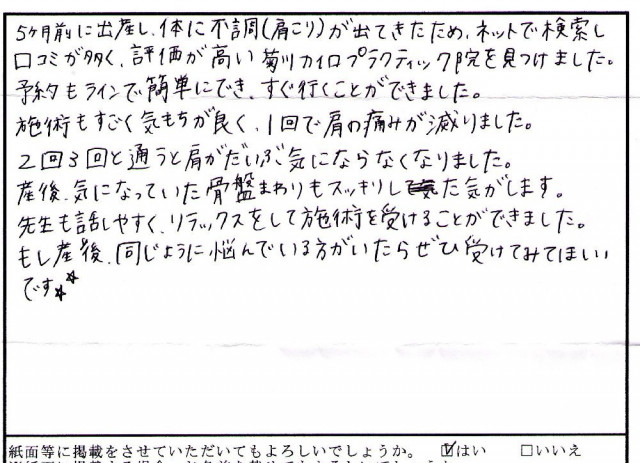 5ヶ月前に出産し、体に不調(肩こり)が出てきたため、ネットで検索し
口コミが多く、評価が高い菊川カイロプラクティック院を見つけました。
予約もラインで簡単にでき、すぐ行くことができました。
施術もすごく気もちが良く、1回で肩の痛みが減りました。
2回3回と通うと肩がだいぶ気にならなくなりました。
産後、気になっていた骨盤まわりもスッキリした気がします。
先生も話しやすく、リラックスをして施術を受けることができました。
もし産後、同じように悩んでいる方がいたらぜひ受けてみてほしい
です☆☆
紙面等に掲載をさせていただいてもよろしいでしょうか。 ☑はい □いいえ